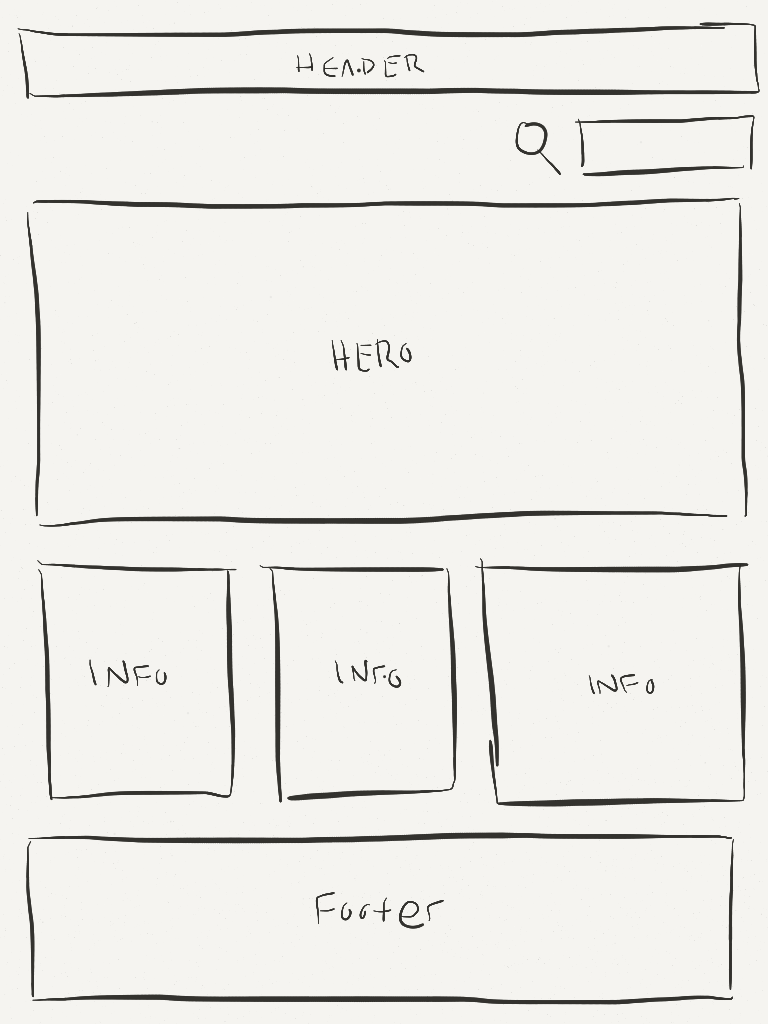 HEADER
HERO
INFO
INFO
INFO
Footer